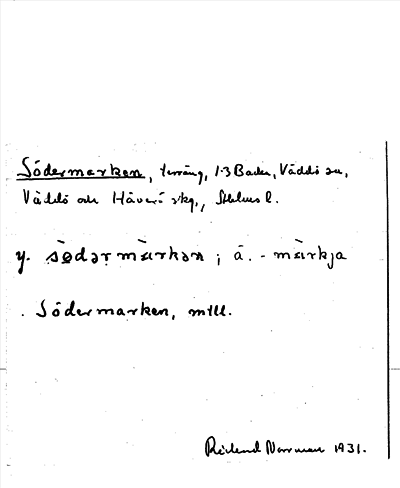 Södermarken, terräng, 1-3 Backa, Väddö sn,
Väddö och Häverö skg., Sthlms l.
y. sødərmarkən ; ä. - märkja
. Södermarken, mtll.
Rickard Norrman 1931.